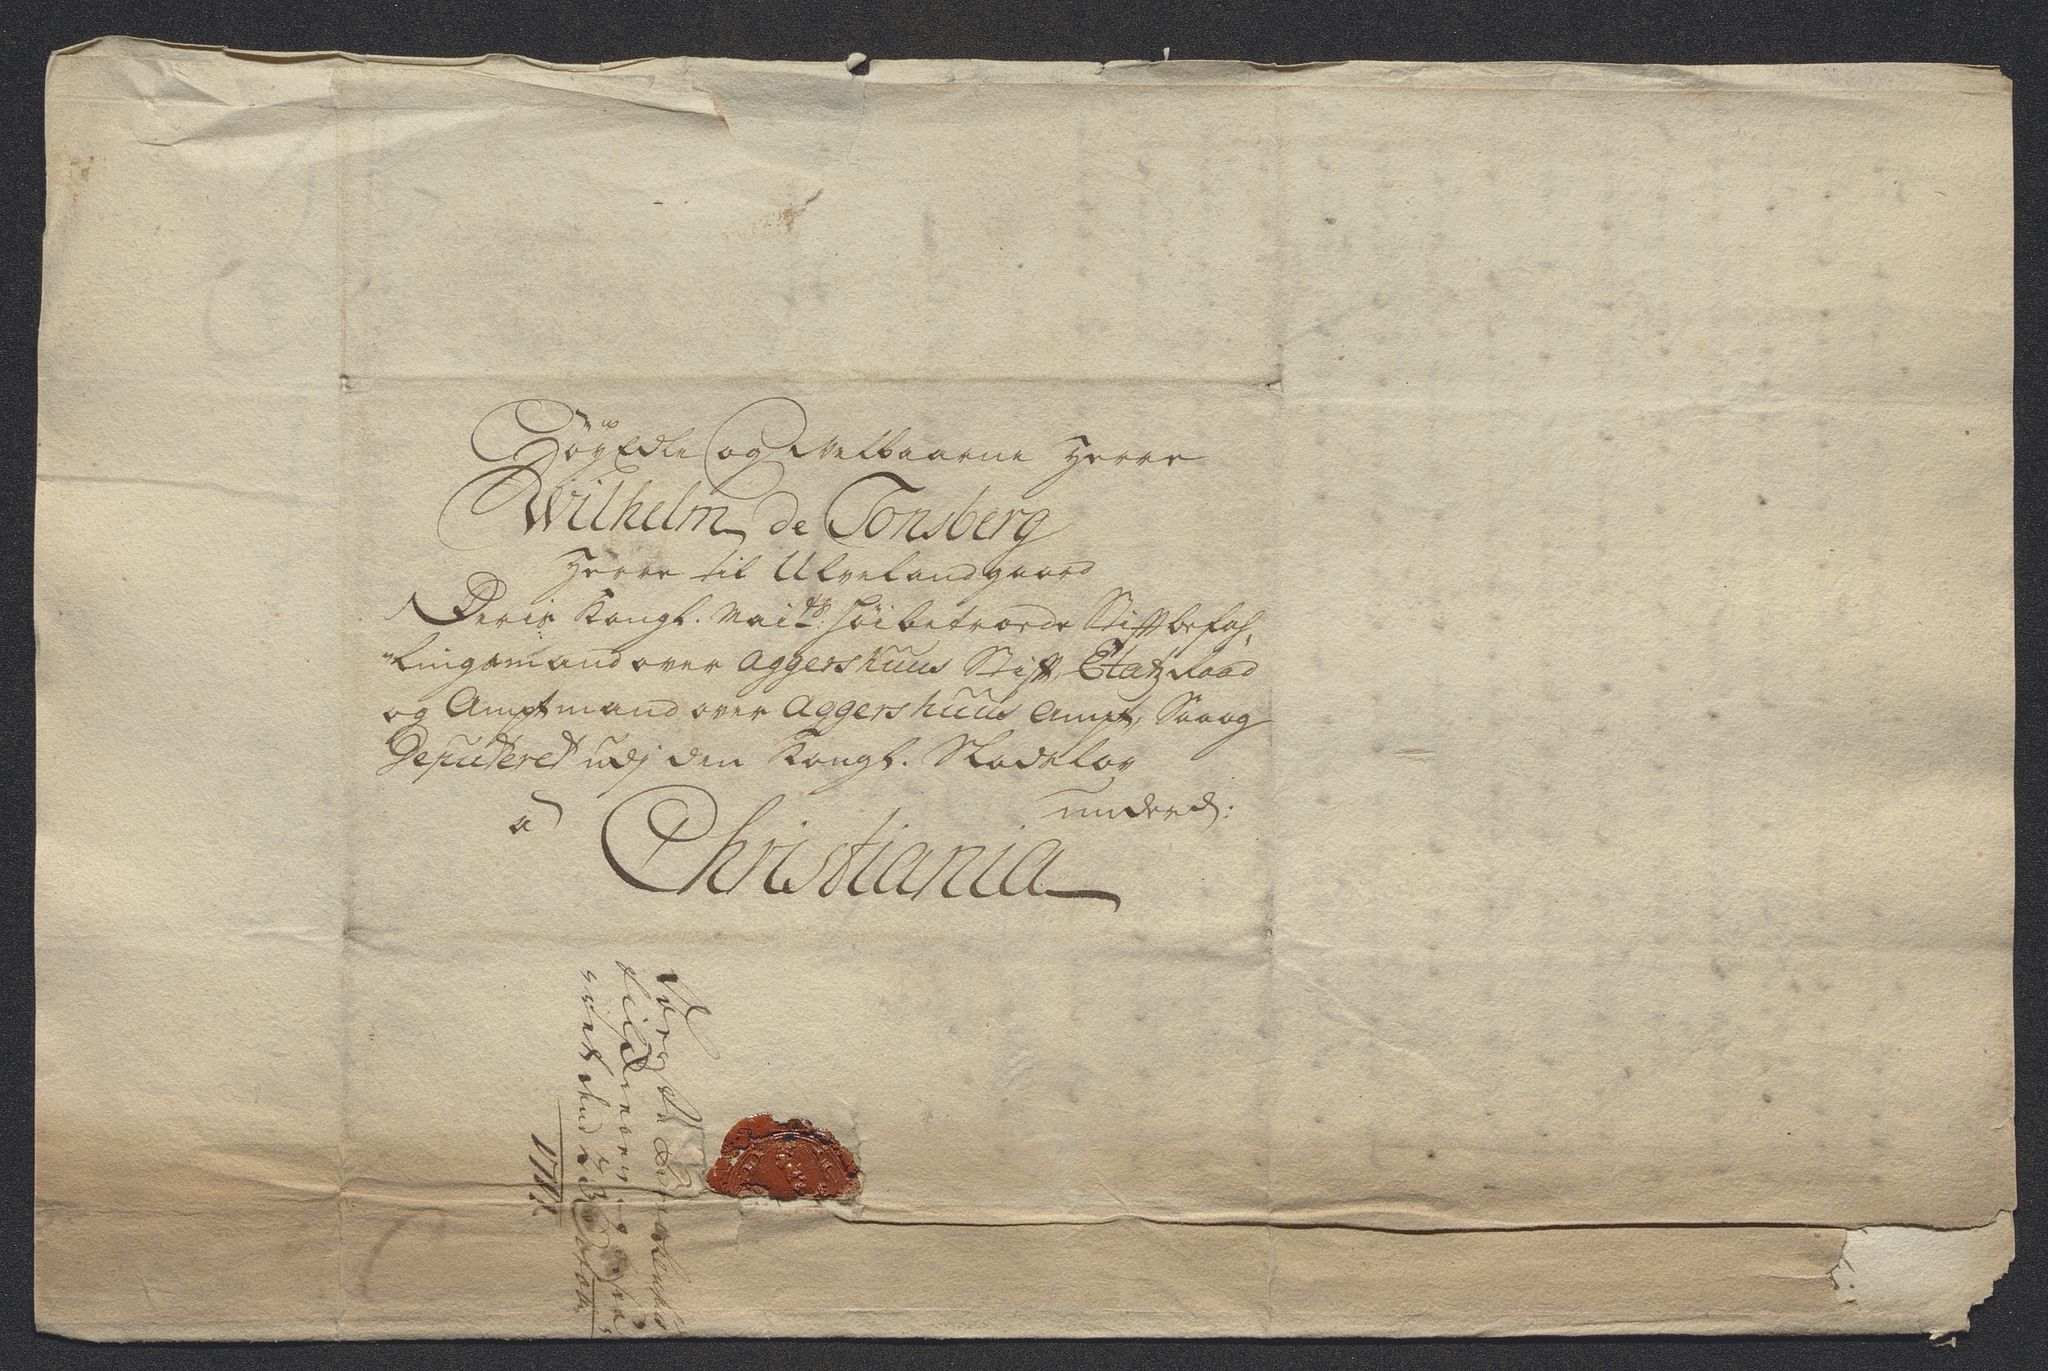 HöyEdle og Velbaarne Herre
Wilhelm de Tonsberg
Herre til Ulvelandgaard
Deris Kongl. Maits: Höibetroede Stiftbefah,
lingsmand over Aggershuus Stift, EtatzRaad
og Amptmand over Aggershuus Ampt, Saa og
Deputeret udj den Kongl. Slodslov
underd:
a
Christiania
den 23 Octob: